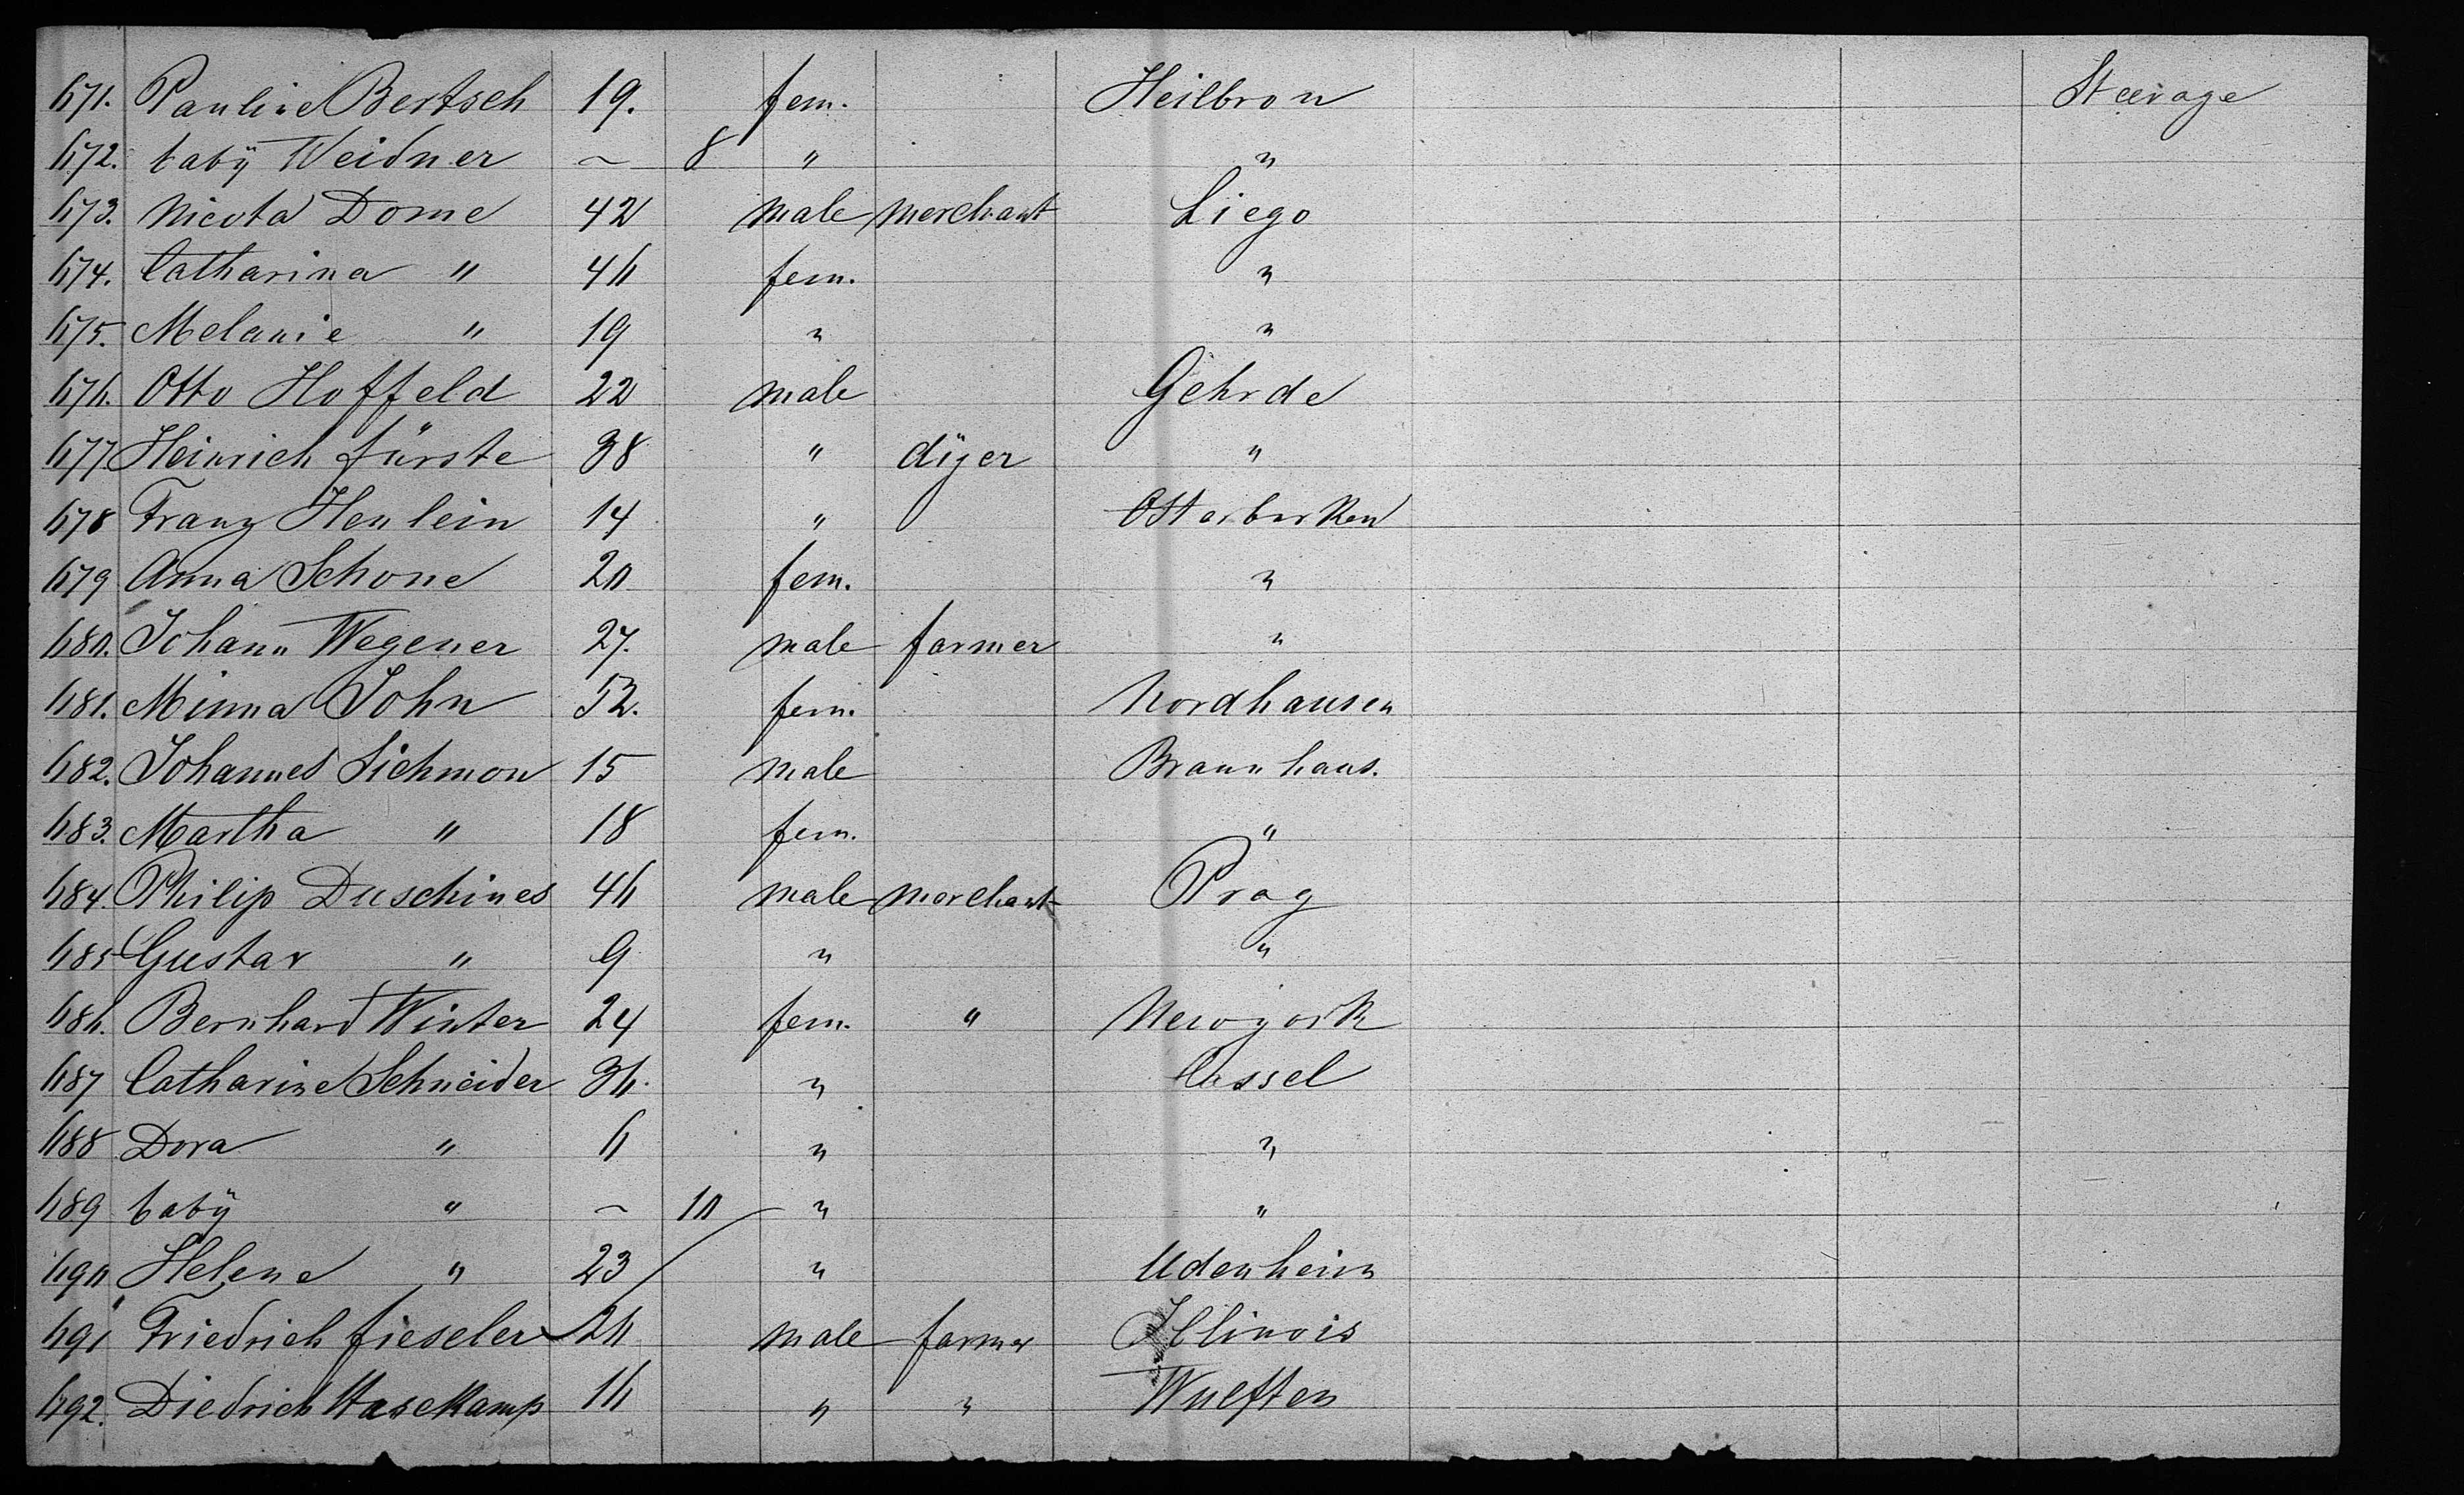 671. Pauline Bertsch 19. fem. Heilbron Steerage
672. baby Weidner ~ 8 " "
673. Nicota Dome 42 male merchant Liego
674. Catharina " 46 fem. "
675. Melanie " 19 " "
676. Otto Hoffeld 22 male Gehrde
677 Heinrich Fürste 38 " dÿer "
678 Franz Henlein 14 " Osterburken
679 Anna Schone 20 fem. "
680. Johann Wegener 27. male farmer "
681. Minna John 52. fem. Nordhausen
682. Johannes Sichmon 15 male Braunhaus.
683. Martha " 18 fem. "
684. Philip Duschines 46 male merchant Prag
685 Gustav " 9 " "
686. Bernhard Winter 24 fem. " Newyork
687 Catharine Schneider 36. " Cassel
688 Dora " 6 " "
689 babÿ " ~ 10 " "
690 Helene " 23 " Udenheim
691 Friedrich Fieseler 26 male farmer Illinois
692. Diedrich Hasekamp 16 " " Wulften